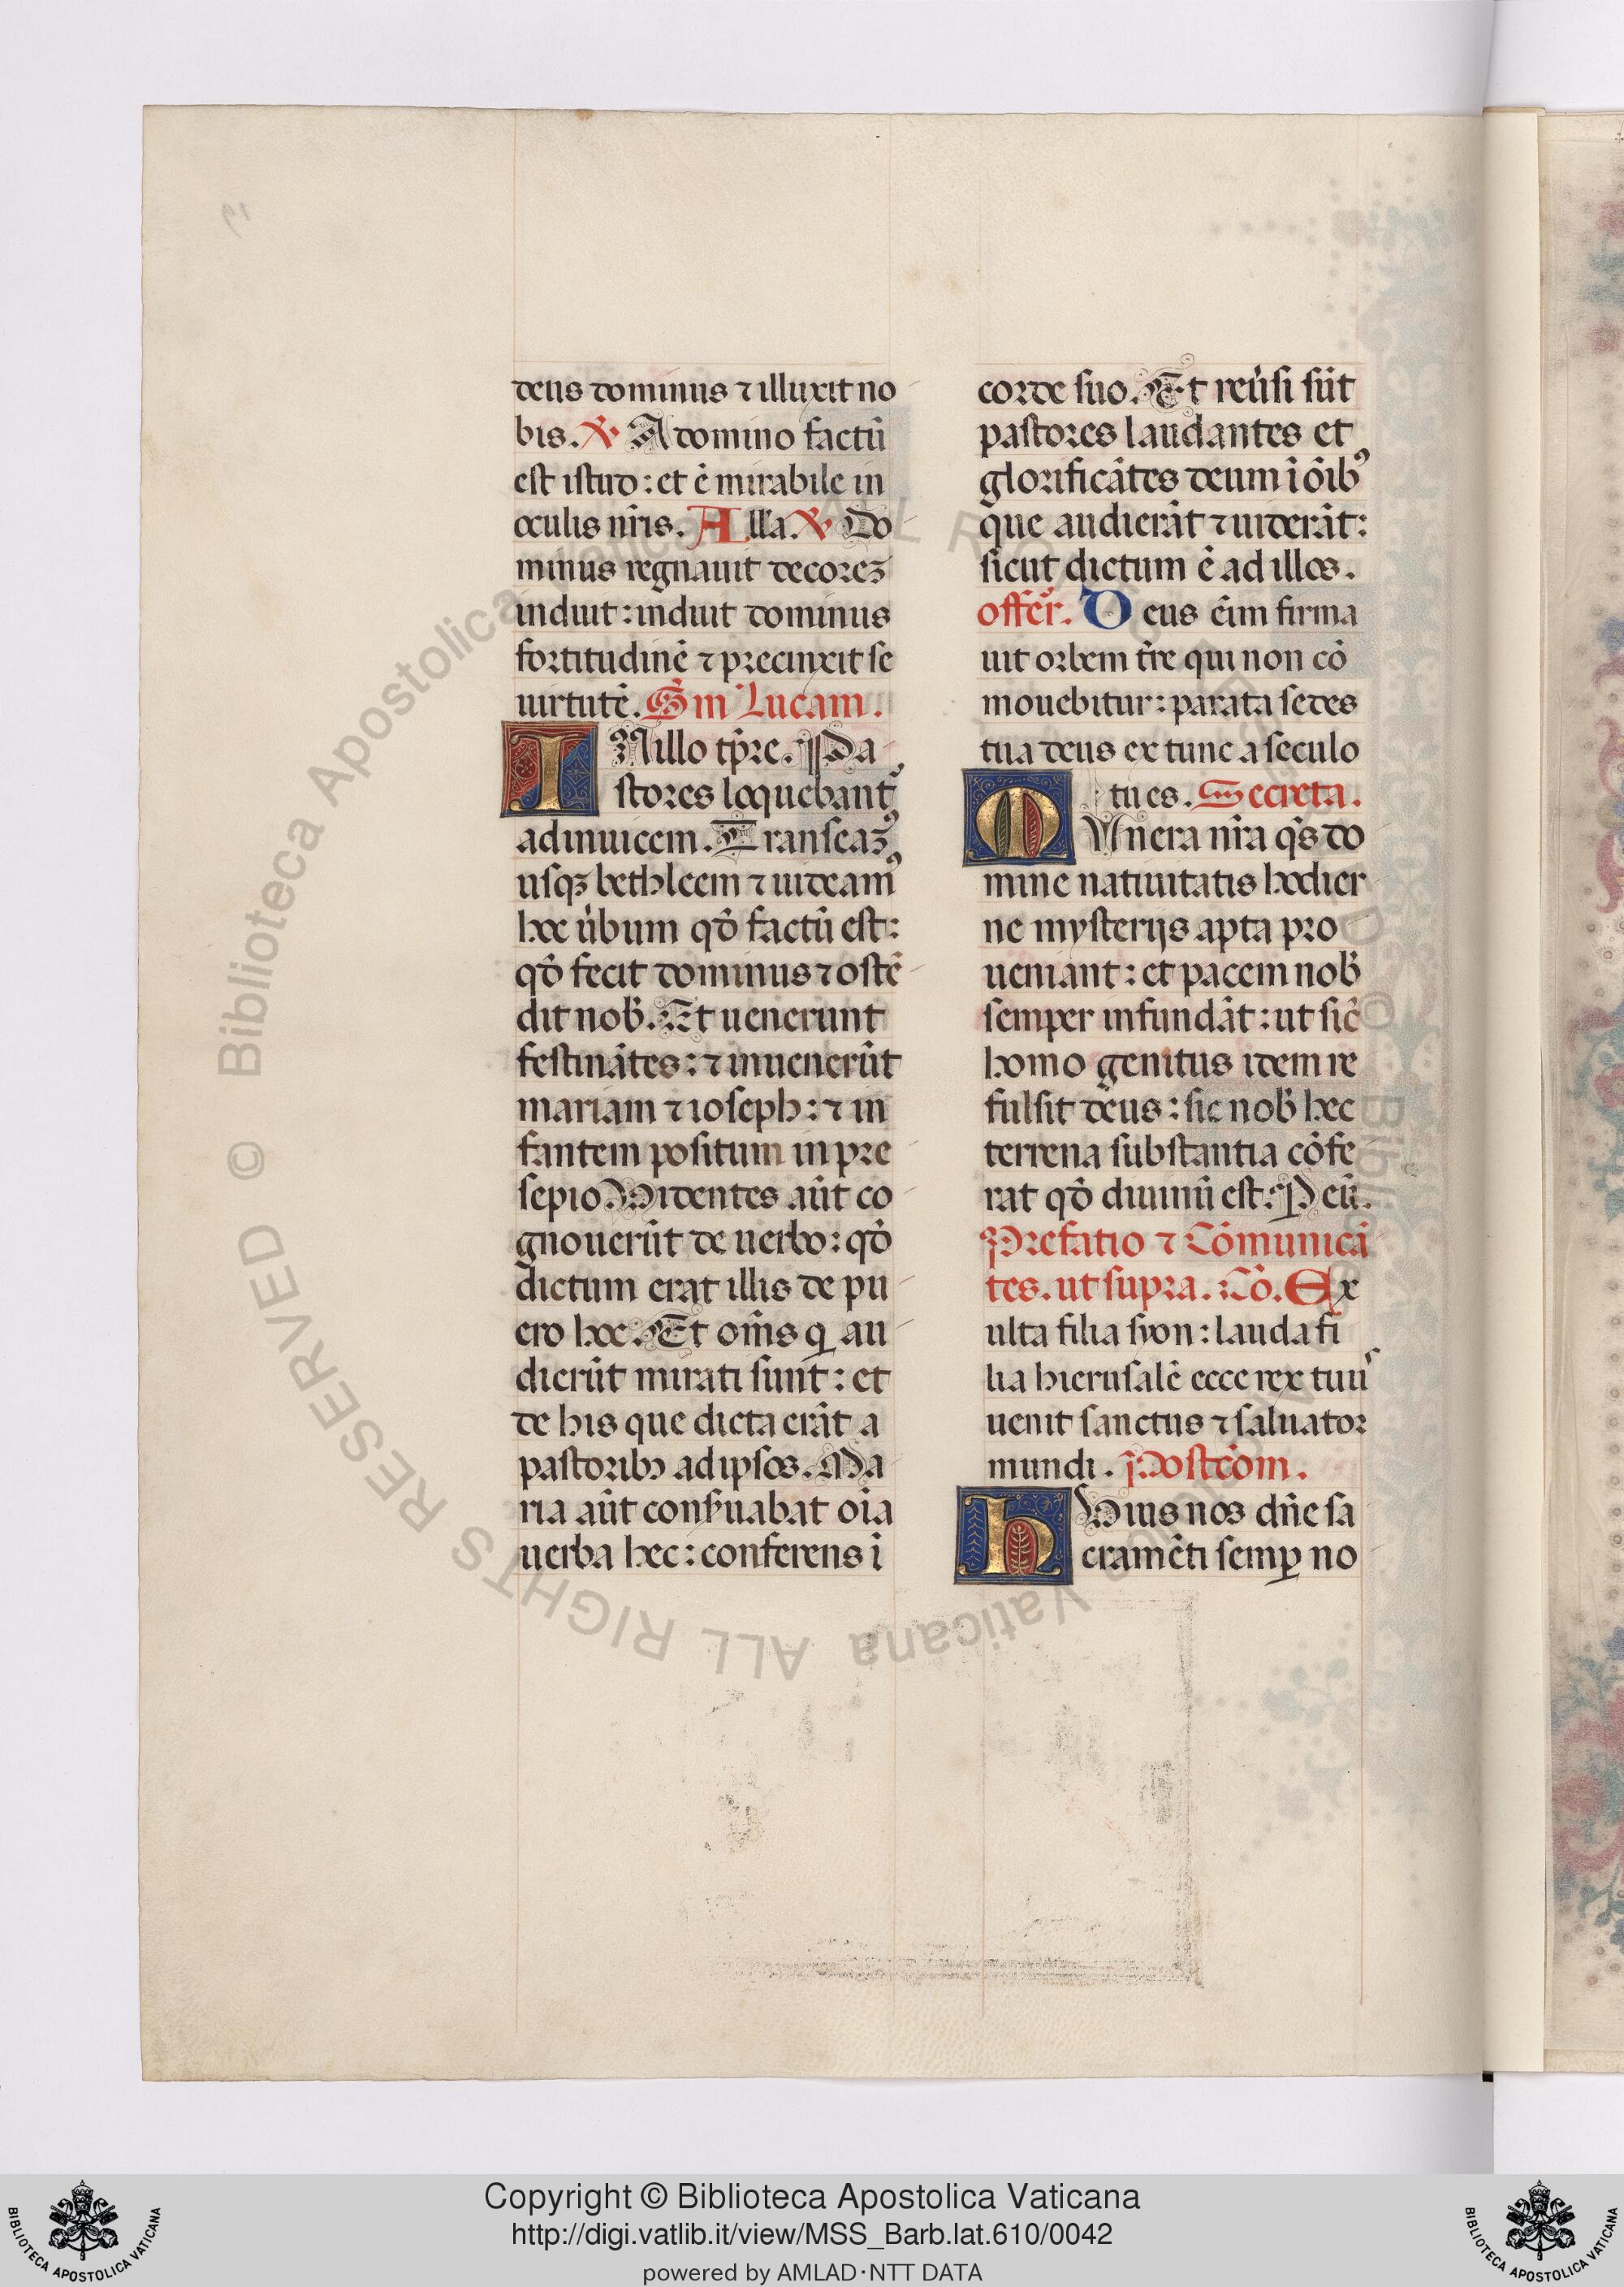 deus dominus ⁊ illuxit no
bis. ℣ A domino factũ
est istud: et ẽ mirabile in
oculis nr̃is. Alla. ℣ Do
minus regnauit decoreꝫ
induit: induit dominus
fortitudinẽ ⁊ precinxit se
uirtutẽ. Sm̃ Lucam.
IN illo tp̃re. Pa
stores loquebantᷣ
adinuicem. Transeamꝰ
usqꝫ bethleem ⁊ uideamꝰ
hoc ũbum qđ factũ est:
qđ fecit dominus ⁊ ostẽ
dit nob̃. Et uenerunt
festinãtes: ⁊ inuenerũt
mariam ⁊ ioseph: ⁊ in
fantem positum in pre
sepio. Videntes aũt co
gnouerũt de uerbo: qđ
dictum erat illis de pu
ero hoc. Et om̃s q̃ au
dierũt mirati sunt: et
de his que dicta erãt a
pastoribꝫ ad ipsos. Ma
ria aũt cons̃uabat oĩa
uerba hec: conferens ĩ
corde suo. Et reũsi sũt
pastores laudantes et
glorificãtes deum ĩ oĩbꝰ
que audierãt ⁊ uiderãt:
sicut dictum ẽ ad illos.
offer̃. Deus eĩm firma
uit orbem t̃re qui non cõ
mouebitur: parata sedes
tua deus ex tunc a seculo
tu es. Secreta.
MVnera nr̃a q̃s do
mine natiuitatis hodier
ne mysterijs apta pro
ueniant: et pacem nob̃
semper infundãt: ut sic̃
homo genitus idem re
fulsit deus: sic nob̃ hec
terrena substantia cõfe
rat qđ diuinũ est. P eũ.
Prefatio ⁊ Cõmunicã
tes. ut supra. Cõ. Ex
ulta filia syon: lauda fi
lia hierusalẽ ecce rex tuuˢ
uenit sanctus ⁊ saluator
mundi. Postcõm.
hVius nos dñe sa
cramẽti semꝑ no
Copyright © Biblioteca Apostolica Vaticana
http://digi.vatlib.it/view/MSS_Barb.lat.610/0042
powered by AMLAD·NTT DATA
BIBLIOTECA APOSTOLICA VATICANA
BIBLIOTECA APOSTOLICA VATICANA
© Biblioteca Apostolica Vaticana ALL RIGHTS RESERVED